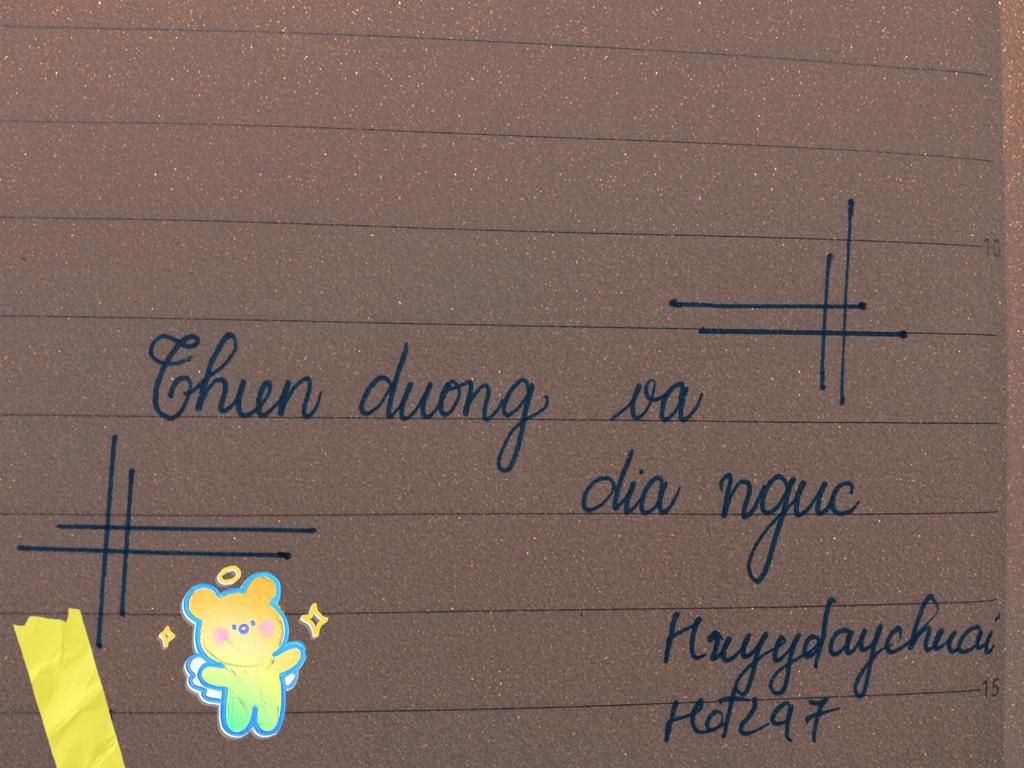 10
Thien duong va
dia nguc
Hzyyydaychuai
15